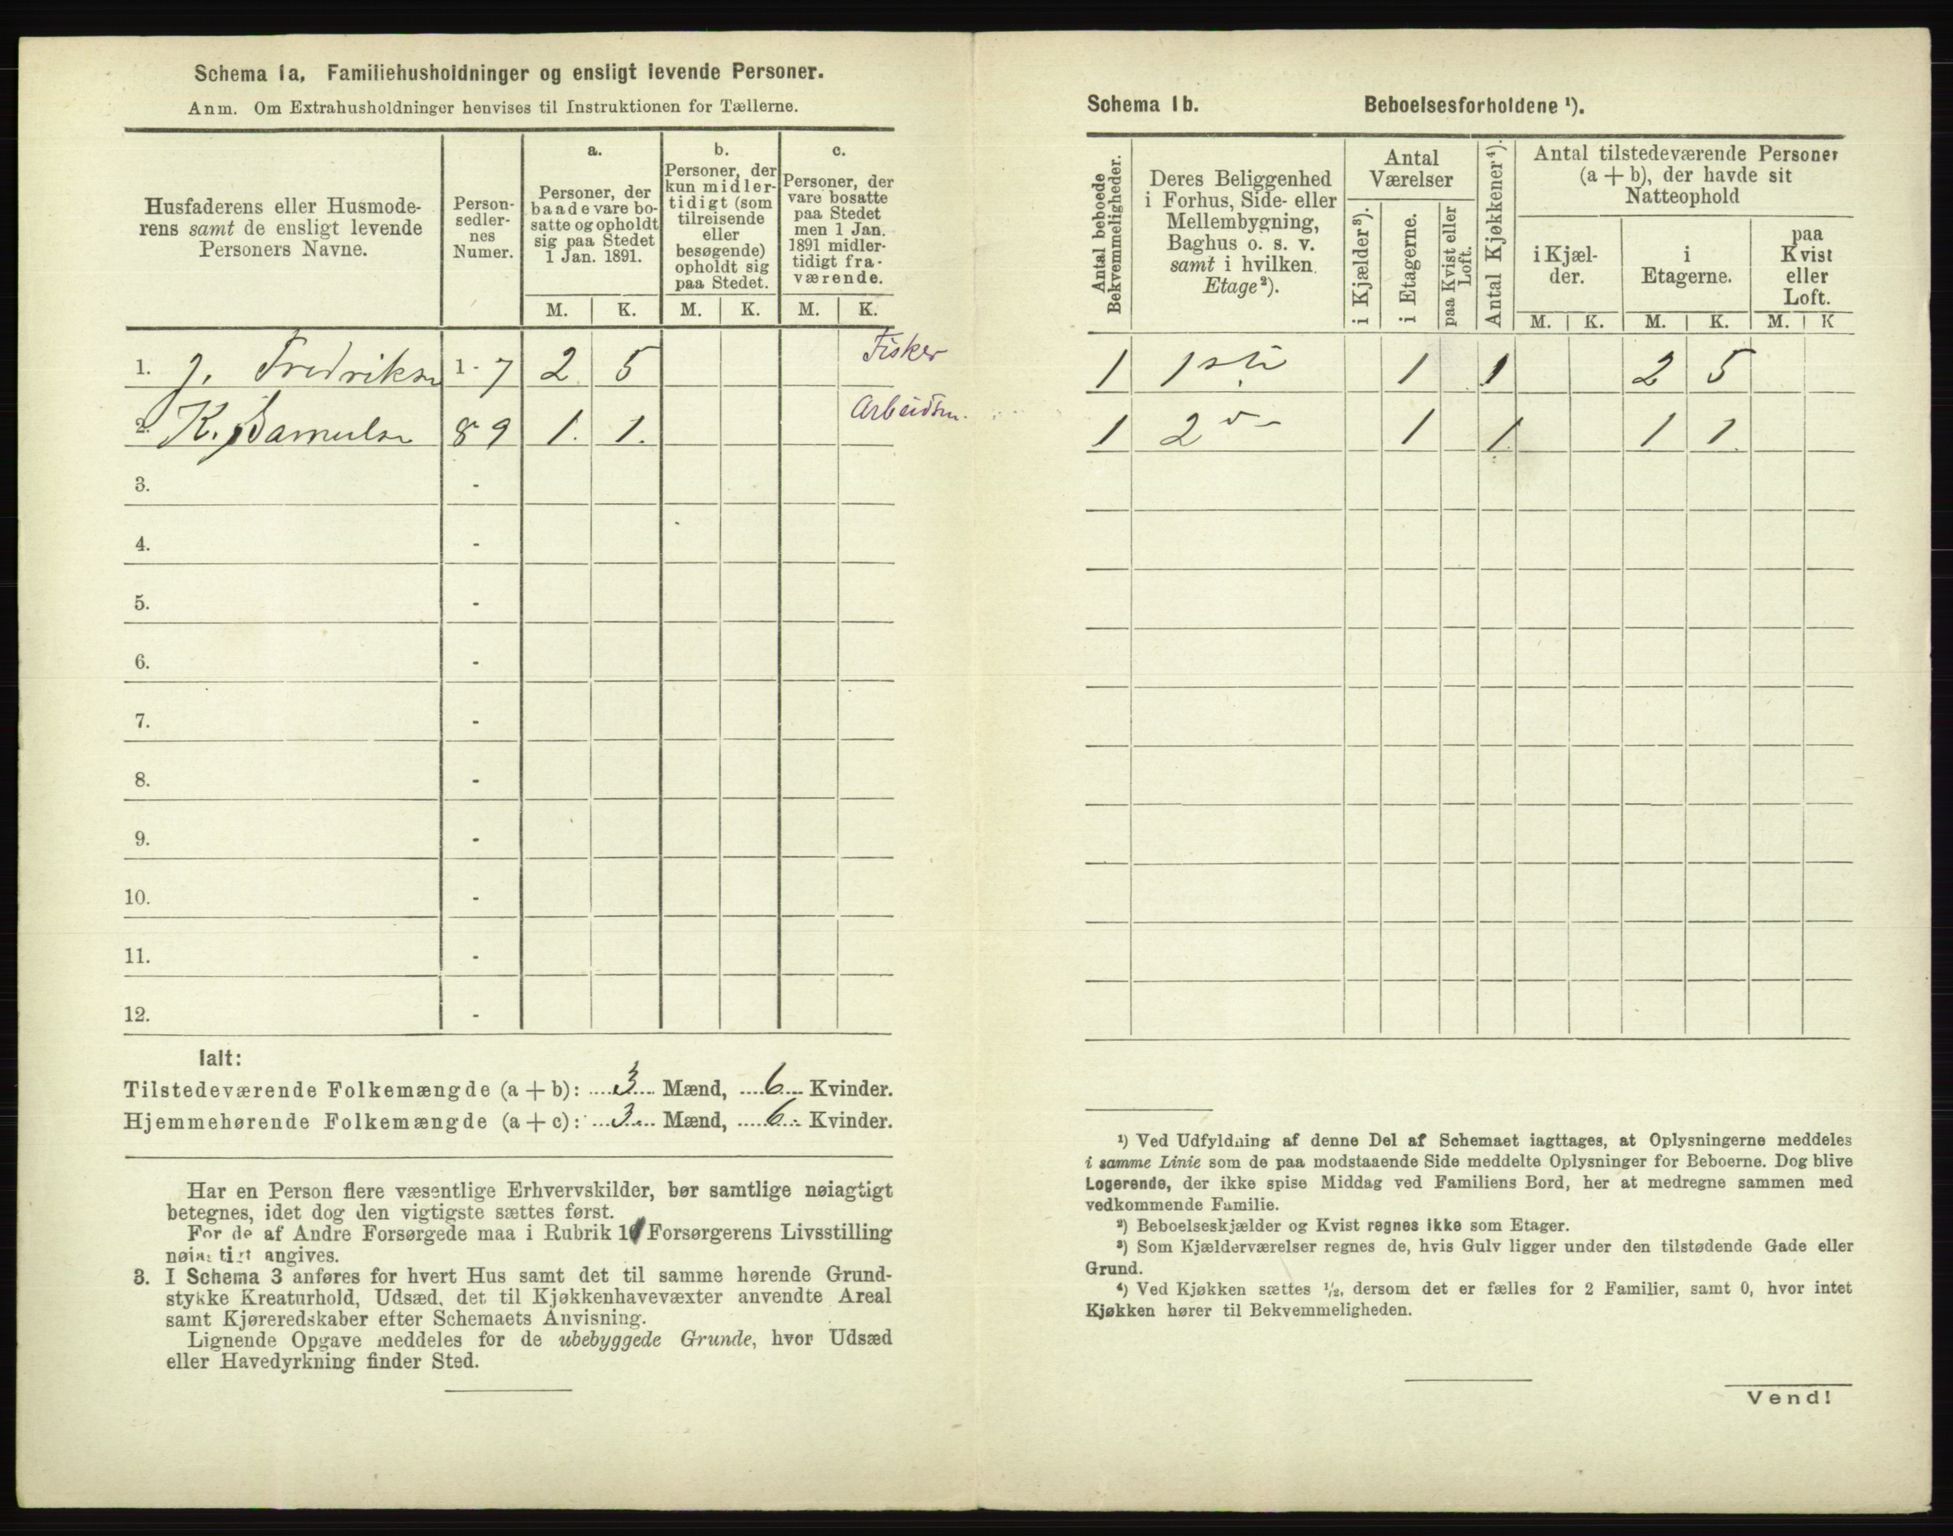 Schema 1a, Familiehusholdninger og ensligt levende Personer.
Anm. Om Extrahusholdninger henvises til Instruktionen for Tællerne.
Husfaderens eller Husmode-
rens samt de ensligt levende
Personers Navne.
Person-
sedler-
nes
Numer.
a.
Personer, der
baade vare bo-
satte og opholdt
sig paa Stedet
1 Jan. 1891.
b.
Personer, der
kun midler-
tidigt (som
tilreisende
eller
besøgende)
opholdt sig
paa Stedet.
c.
Personer, der
vare bosatte
paa Stedet
men 1 Jan.
1891 midler-
tidigt fra-
værende.
M. K. M. K. M. K.
1. J. Fredriksn 1 - 7 2 5 Fisker
2. K. Samulsn 8 9 1. 1. Arbeidsm.
3. -
4. -
5. -
6. -
7. -
8. -
9. -
10. -
11. -
12. -
Ialt:
Tilstedeværende Folkemængde (a + b): 3 Mænd, 6 Kvinder.
Hjemmehørende Folkemængde (a + c): 3 Mænd, 6 Kvinder.
Har en Person flere væsentlige Erhvervskilder, bør samtlige nøiagtigt
betegnes, idet dog den vigtigste sættes først.
For de af Andre Forsørgede maa i Rubrik 1 Forsørgerens Livsstilling
nøiagtigt angives.
3. I Schema 3 anføres for hvert Hus samt det til samme hørende Grund-
stykke Kreaturhold, Udsæd, det til Kjøkkenhavevæxter anvendte Areal
samt Kjøreredskaber efter Schemaets Anvisning.
Lignende Opgave meddeles for de ubebyggede Grunde, hvor Udsæd
eller Havedyrkning finder Sted.
Schema 1b. Beboelsesforholdene ¹).
Antal beboede
Bekvemmeligheder.
Deres Beliggenhed
i Forhus, Side- eller
Mellembygning,
Baghus o. s. v.
samt i hvilken
Etage²).
Antal
Værelser
i Kjælder³).
i Etagerne.
paa Kvist eller
Loft.
Antal Kjøkkener⁴).
Antal tilstedeværende Personer
(a + b), der havde sit
Natteophold
i Kjæl-
der.
i
Etagerne.
paa
Kvist
eller
Loft.
M. K. M. K. M. K
1 1ste 1 1 2 5
1 2 1 1 1 1.
¹) Ved Udfyldning af denne Del af Schemaet iagttages, at Oplysningerne meddeles
i samme Linie som de paa modstaaende Side meddelte Oplysninger for Beboerne. Dog blive
Logerende, der ikke spise Middag ved Familiens Bord, her at medregne sammen med
vedkommende Familie.
²) Beboelseskjælder og Kvist regnes ikke som Etager.
³) Som Kjælderværelser regnes de, hvis Gulv ligger under den tilstødende Gade eller
Grund.
⁴) Ved Kjøkken sættes ½, dersom det er fælles for 2 Familier, samt 0, hvor intet
Kjøkken hører til Bekvemmeligheden.
Vend!